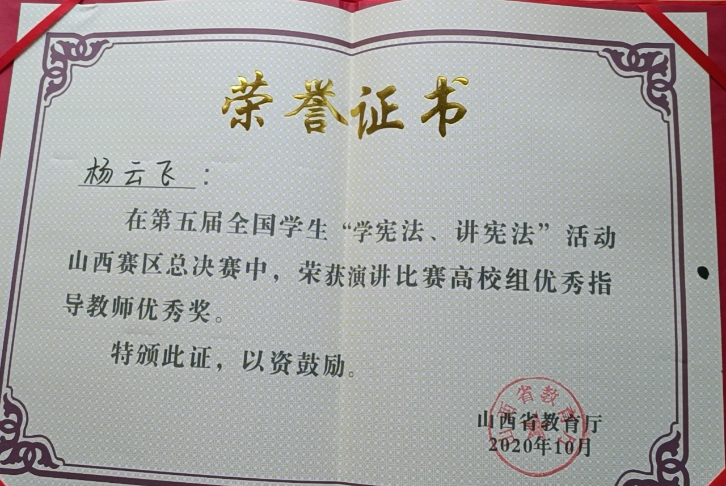 荣誉证书
杨云飞：
在第五届全国学生“学宪法、讲宪法”活动
山西赛区总决赛中，荣获演讲比赛高校组优秀指
导教师优秀奖。
特颁此证，以资鼓励。
山西省教育厅
2020年10月
山西省教育厅